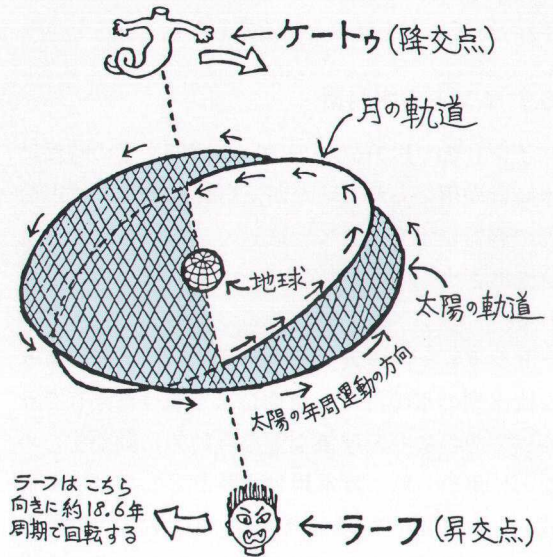 ←ケートゥ(降交点)
月の軌道
地球
太陽の軌道
太陽の年周運動の方向
ラーフは こちら
向きに約18.6年
周期で回転する
←ラーフ(昇交点)